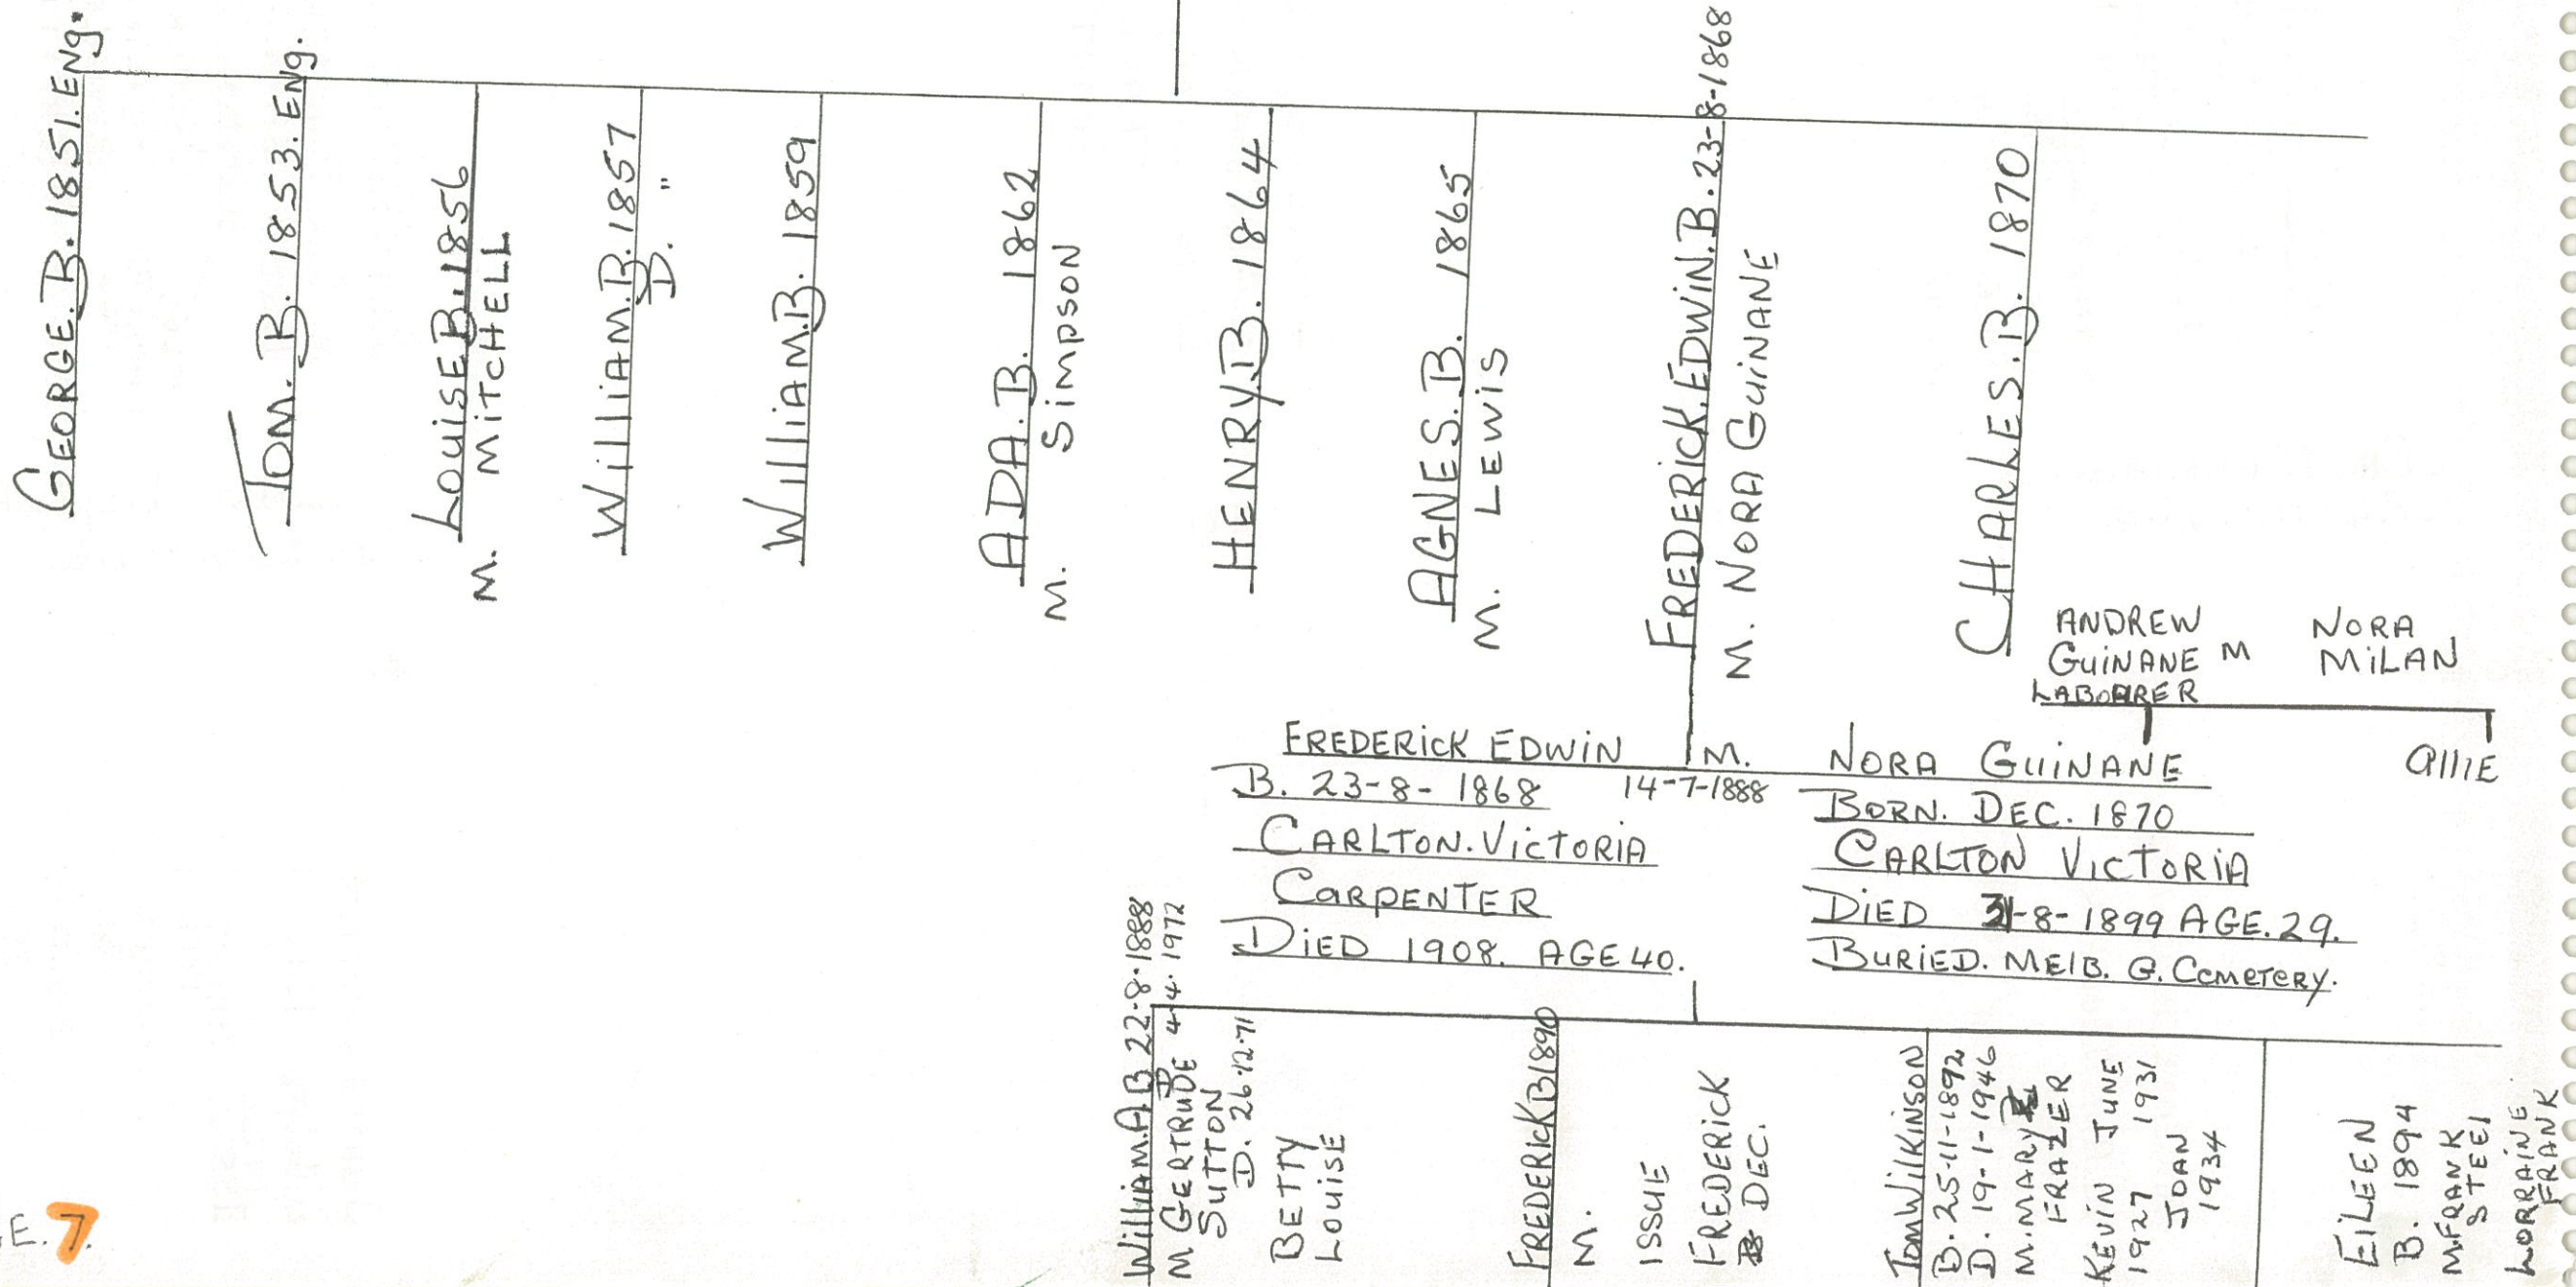 GEORGE. B. 1851. ENG.
TOM. B. 1853. ENG.
LOUISE B. 1856
M. MITCHELL
WILLIAM. B. 1857
D. "
WILLIAM. B. 1859
ADA. B. 1862
M. SIMPSON
HENRY. B. 1864
AGNES. B. 1865
M. LEWIS
FREDERICK. EDWIN. B. 23-8-1868
M. NORA GUINANE
CHARLES. B. 1870
ANDREW GUINANE M NORA MILAN
FREDERICK EDWIN M. NORA GUINANE
ALLIE
B. 23-8-1868
14-7-1888
BORN. DEC. 1870
CARLTON. VICTORIA
CARLTON VICTORIA
CARPENTER
DIED 31-8-1899 AGE. 29.
DIED 1908. AGE 40.
BURIED. MELB. G. CEMETERY.
WILLIAM. A B 22-8-1888
D 4-4-1972
M GERTRUDE
SUTTON
D. 26-12-71
BETTY
LOUISE
FREDERICK B 1890
M.
ISSUE
FREDERICK
DEC.
TOM WILKINSON
B. 25-11-1892
D. 19-1-1946
M. MARY
FRAZER
KEVIN JUNE
1927 1931
JOAN
1934
EILEEN
B. 1894
M FRANK
STEEL
LORRAINE
FRANK
E. 7.